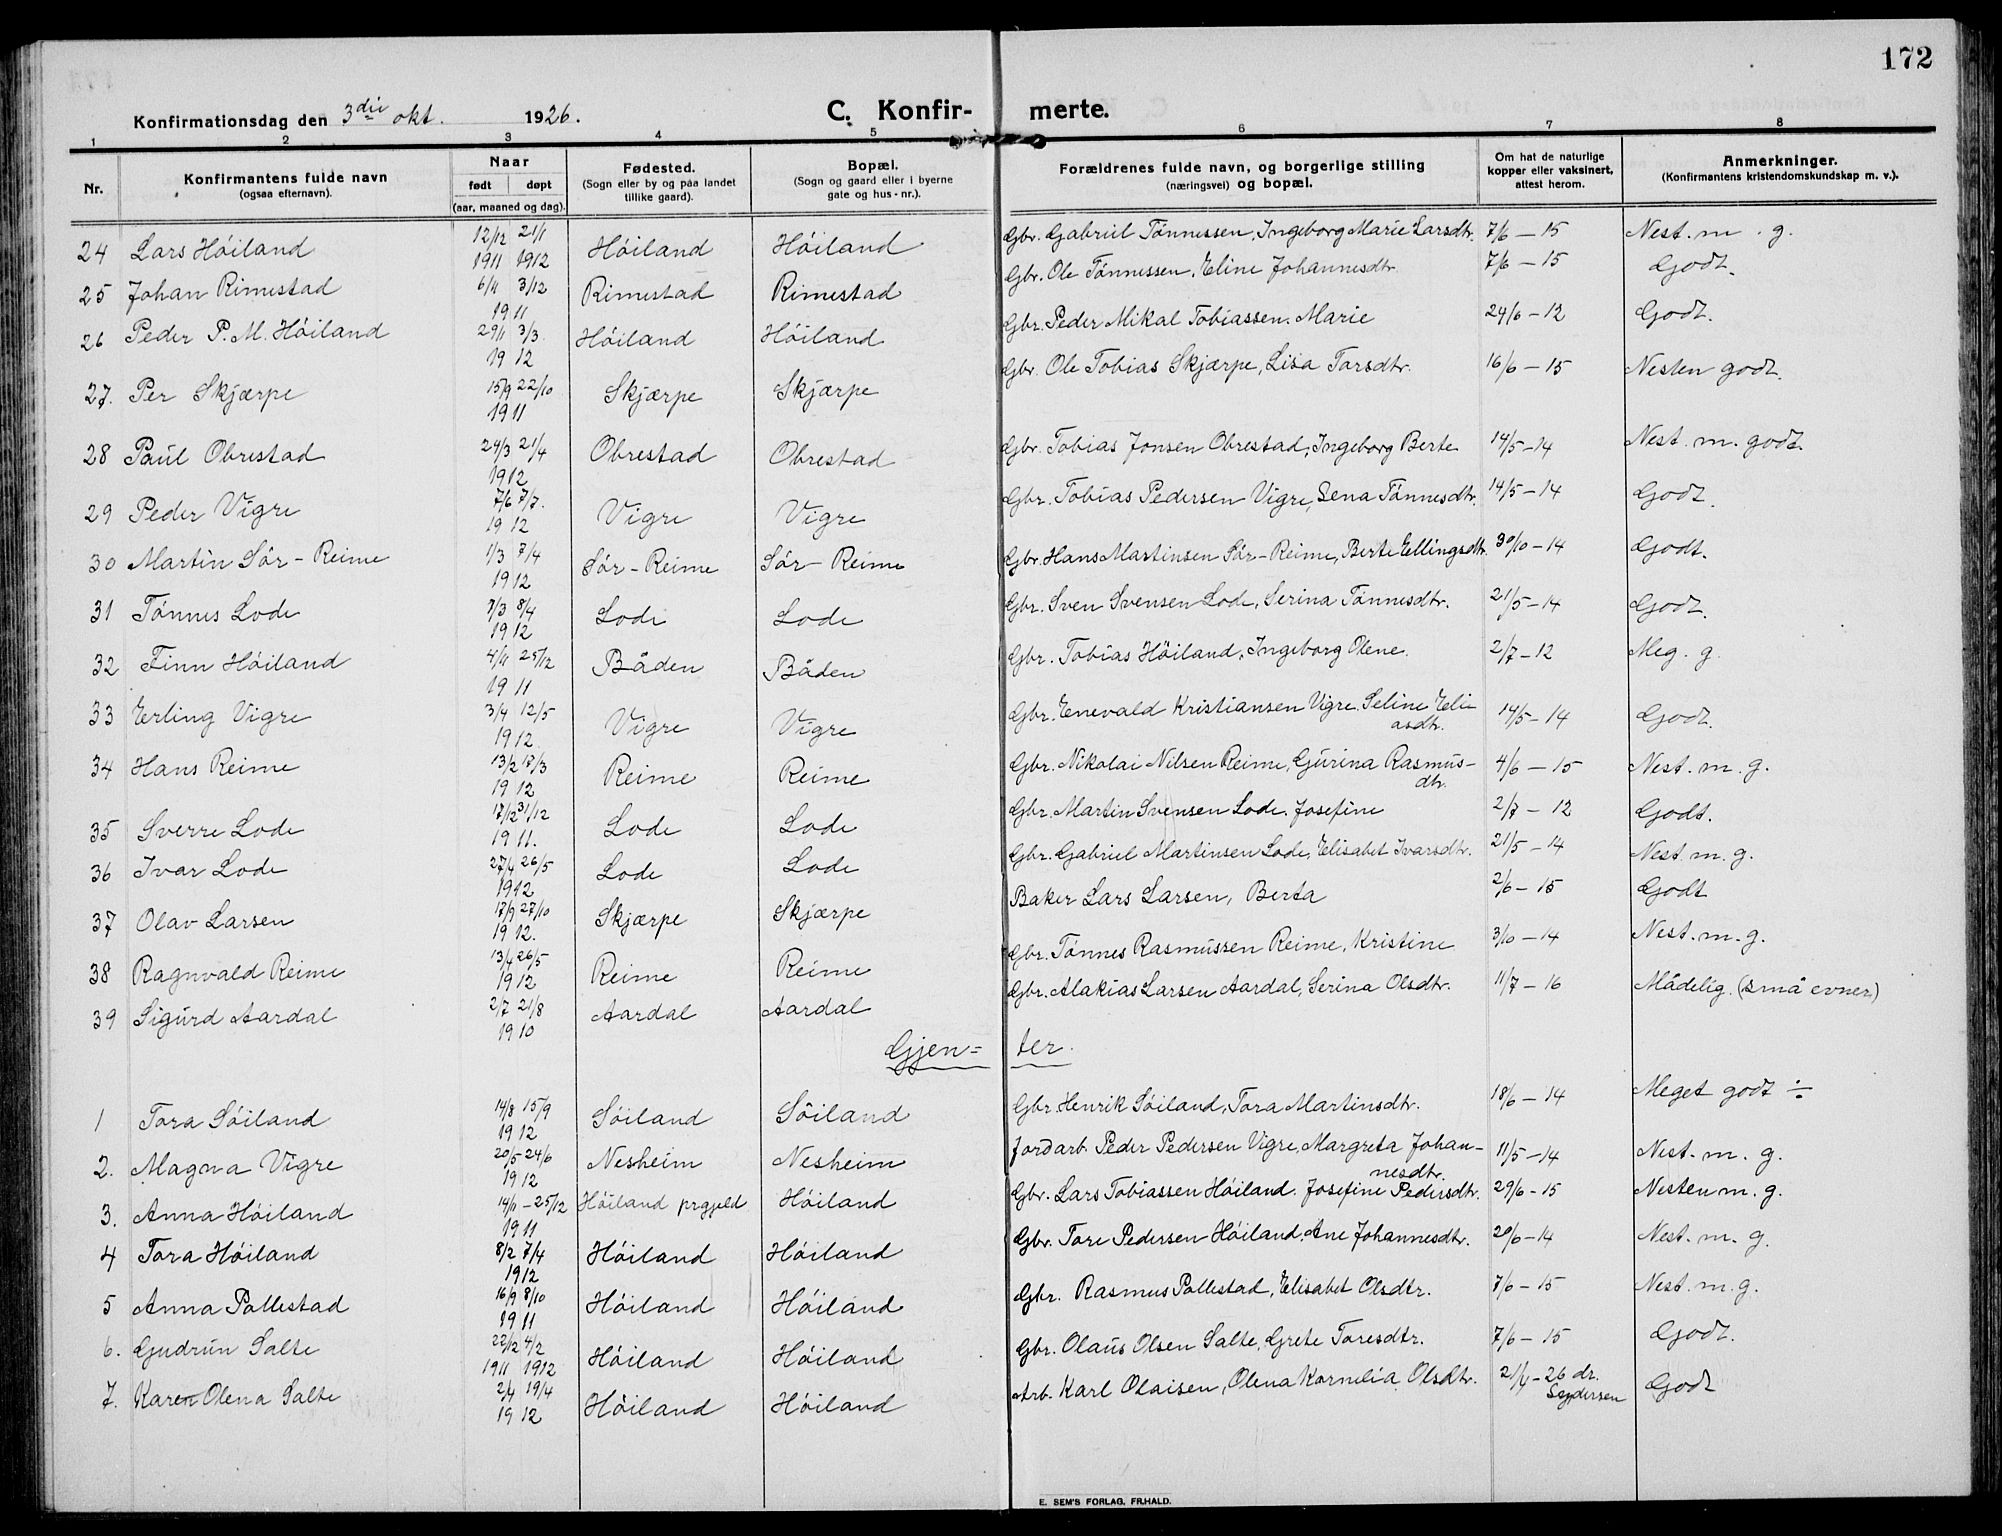 172
Konfirmationsdag den 3die okt. 1926.
C. Konfirmerte.
1 2 3 4 5 6 7 8
Nr. Konfirmantens fulde navn (ogsaa efternavn). Naar født døpt (aar, maaned og dag). Fødested. (Sogn eller by og paa landet tillike gaard). Bopæl. (Sogn og gaard eller i byerne gate og hus-nr.). Forældrenes fulde navn, og borgerlige stilling (næringsvei) og bopæl. Om hat de naturlige kopper eller vaksinert, attest herom. Anmerkninger. (Konfirmantens kristendomskundskap m. v.).
24 Lars Höiland 12/12 1911 21/1 1912 Höiland Höiland Gbr. Gabriel Tönnessen, Ingeborg Marie Larsdtr. 7/6 – 15 Nest. m. g.
25 Johan Rimestad 6/11 3/12 1911 Rimestad Rimestad Gbr. Ole Tönnessen, Eline Johannesdtr. 7/6 – 15 Godt.
26 Peder P. M. Höiland 29/1 3/3 1912 Höiland Höiland Gbr. Peder Mikal Tobiassen. Marie 24/6 – 12 Godt.
27. Per Skjærpe 15/9 22/10 1911 Skjærpe Skjærpe Gbr. Ole Tobias Skjærpe, Lisa Tarsdtr. 16/6 – 15 Nesten godt.
28 Paul Obrestad 24/3 21/4 1912 Obrestad Obrestad Gbr. Tobias Jonsen Obrestad, Ingeborg Berte 14/5 – 14 Nest. m. godt.
29 Peder Vigre 7/6 7/7. 1912 Vigre Vigre Gbr. Tobias Pedersen Vigre, Lena Tönnesdtr. 14/5 – 14 Godt.
30 Martin Sör-Reime 1/3 7/4 1912 Sör-Reime Sör-Reime Gbr. Hans Martinsen Sör-Reime, Berte Ellingsdtr. 30/10 – 14 Godt.
31 Tönnes Lode 7/3 8/4 1912 Lode Lode Gbr. Sven Svensen Lode, Serina Tönnesdtr. 21/5 – 14 Godt.
32 Finn Höiland 4/11 25/12 1911 Båden Båden Gbr. Tobias Höiland, Ingeborg Olene. 2/7 – 12 Meg. g.
33 Erling Vigre 3/4 12/5 1912. Vigre Vigre Gbr. Enevald Kristiansen Vigre, Seline Eliasdtr. 14/5 – 14 Godt.
34 Hans Reime 13/2 17/3 1912 Reime Reime Gbr. Nikolai Nilsen Reime, Gurina Rasmusdtr. 4/6 – 15 Nest. m. g.
35 Sverre Lode 17/12 31/12 1911. Lode Lode Gbr. Martin Svensen Lode. Josefine 2/7 – 12 Godt.
36 Ivar Lode 27/4 26/5 1912 Lode Lode Gbr. Gabriel Martinsen Lode, Elisabet Ivarsdtr. 21/5 – 14 Nest. m. g.
37 Olav Larsen 17/9 27/10 1912. Skjærpe Skjærpe Baker Lars Larsen, Berta 2/6 – 15 Godt
38 Ragnvald Reime 13/4 26/5 1912 Reime Reime Gbr. Tönnes Rasmussen Reime, Kristine 3/10 – 14 Nest. m. g.
39 Sigurd Aardal 2/7 21/8 1910 Aardal Aardal Gbr. Alakias Larsen Aardal, Serina Olsdtr. 11/7 – 16 Mådelig. (små evner)
Gjen= ter.
1 Tora Söiland 14/8 15/9 1912 Söiland Söiland Gbr. Henrik Söiland, Tora Martinsdtr. 18/6 – 14 Meget godt ÷
2. Magna Vigre 20/5 24/6 1912 Nesheim Nesheim Jordarb. Peder Pedersen Vigre, Margreta Johannesdtr. 11/5 – 14 Nest. m. g.
3. Anna Höiland 25/12 1911 Höiland prgjeld Höiland Gbr. Lars Tobiassen Höiland. Josefine Pedersdtr. 29/6 – 15 Nesten m. g.
4 Tora Höiland 8/2 7/4 1912 Höiland Höiland Gbr. Tore Pedersen Höiland, Ane Johannesdtr. 20/6 – 14 Nest. m. g.
5 Anna Pollestad 16/9 8/10 1911 Höiland Höiland Gbr. Rasmus Pollestad, Elisabet Olsdtr. 7/6 – 15 Nest. m. g.
6. Gudrun Salte 22/12 1911 4/2 1912 Höiland Höiland Gbr. Olaus Olsen Salte, Grete Toresdtr. 7/6 – 15 Godt.
7. Karen Olena Salte 2/4 19/4 1912 Höiland Höiland Arb. Karl Olaisen, Olena Kornelia Olsdtr. – 26 dr. Godt
E. SEM'S FORLAG, FR.HALD.